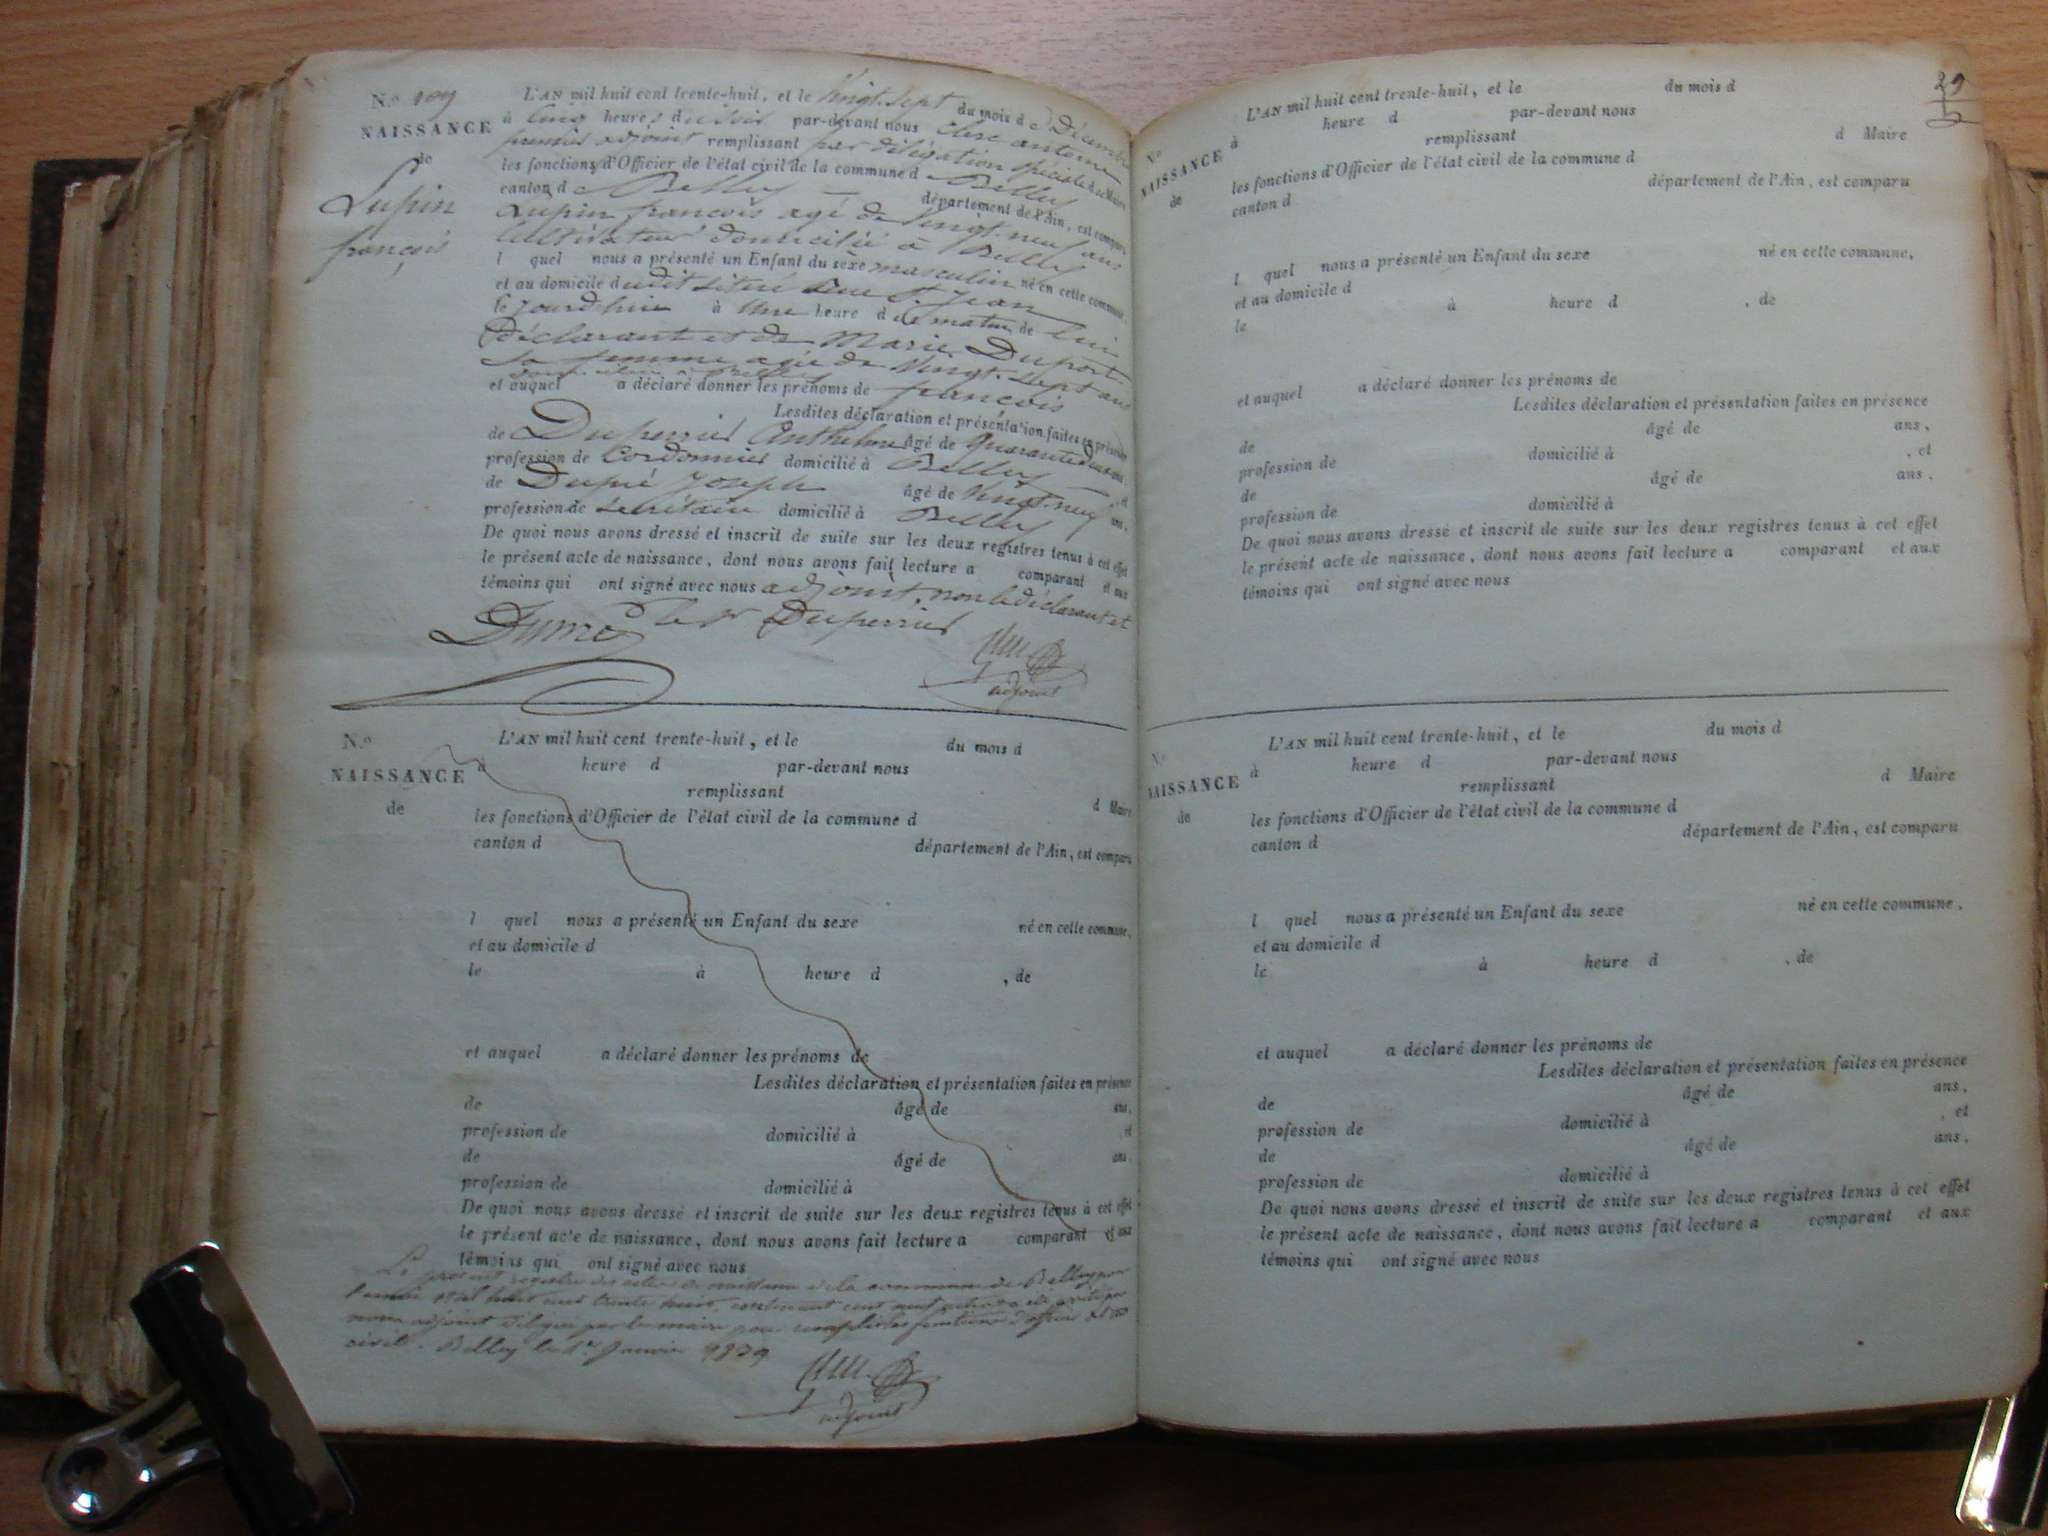 N.o 109
NAISSANCE
de
Lupin
françois
L'AN mil huit cent trente-huit, et le Vingt-sept du mois de Décembre
à Cinq heures du soir par-devant nous Clerc anteme
premier adjoint remplissant par délégation spéciale de Maire
les fonctions d'Officier de l'état civil de la commune de Belley
canton de Belley département de l'Ain, est comparu
Lupin françois agé de Vingt-neuf ans
Cultivateur domicilié à Belley
l quel nous a présenté un Enfant du sexe masculin né en cette commune,
et au domicile dudit situé Rue St. Jean
le jourdhui à Une heure du matin, de lui
Déclarant et de Marie Duport
sa femme agée de Vingt-sept ans
domiciliée à Belley
et auquel a déclaré donner les prénoms de françois
Lesdites déclaration et présentation faites en présence
de Duperrier Anthelme âgé de Quarante ans,
profession de Cordonnier domicilié à Belley, et
de Dupré Joseph âgé de Vingt-neuf ans,
profession de sécrétaire domicilié à Belley
De quoi nous avons dressé et inscrit de suite sur les deux registres tenus à cet effet
le présent acte de naissance, dont nous avons fait lecture a comparant et aux
témoins qui ont signé avec nous adjoint, non le déclarant et
Duperrier
adjoint
N.o
NAISSANCE
de
L'AN mil huit cent trente-huit, et le du mois d
à heure d par-devant nous
remplissant d Maire
les fonctions d'Officier de l'état civil de la commune d
canton d département de l'Ain, est comparu
l quel nous a présenté un Enfant du sexe né en cette commune,
et au domicile d
le à heure d , de
et auquel a déclaré donner les prénoms de
Lesdites déclaration et présentation faites en présence
de âgé de ans,
profession de domicilié à , et
de âgé de ans,
profession de domicilié à
De quoi nous avons dressé et inscrit de suite sur les deux registres tenus à cet effet
le présent acte de naissance, dont nous avons fait lecture a comparant et aux
témoins qui ont signé avec nous
Le présent registre des actes de naissance de la commune de Belley pour
l'année mil huit cent trente huit, contenant cent neuf actes a été par
nous adjoint délégué par le maire pour remplir les fonctions d'officier de l'état
civil. Belley le 1er Janvier 1839
adjoint
29
N.o
NAISSANCE
de
L'AN mil huit cent trente-huit, et le du mois d
à heure d par-devant nous
remplissant d Maire
les fonctions d'Officier de l'état civil de la commune d
canton d département de l'Ain, est comparu
l quel nous a présenté un Enfant du sexe né en cette commune,
et au domicile d
le à heure d , de
et auquel a déclaré donner les prénoms de
Lesdites déclaration et présentation faites en présence
de âgé de ans,
profession de domicilié à , et
de âgé de ans,
profession de domicilié à
De quoi nous avons dressé et inscrit de suite sur les deux registres tenus à cet effet
le présent acte de naissance, dont nous avons fait lecture a comparant et aux
témoins qui ont signé avec nous
N.o
NAISSANCE
de
L'AN mil huit cent trente-huit, et le du mois d
à heure d par-devant nous
remplissant d Maire
les fonctions d'Officier de l'état civil de la commune d
canton d département de l'Ain, est comparu
l quel nous a présenté un Enfant du sexe né en cette commune,
et au domicile d
le à heure d , de
et auquel a déclaré donner les prénoms de
Lesdites déclaration et présentation faites en présence
de âgé de ans,
profession de domicilié à , et
de âgé de ans,
profession de domicilié à
De quoi nous avons dressé et inscrit de suite sur les deux registres tenus à cet effet
le présent acte de naissance, dont nous avons fait lecture a comparant et aux
témoins qui ont signé avec nous